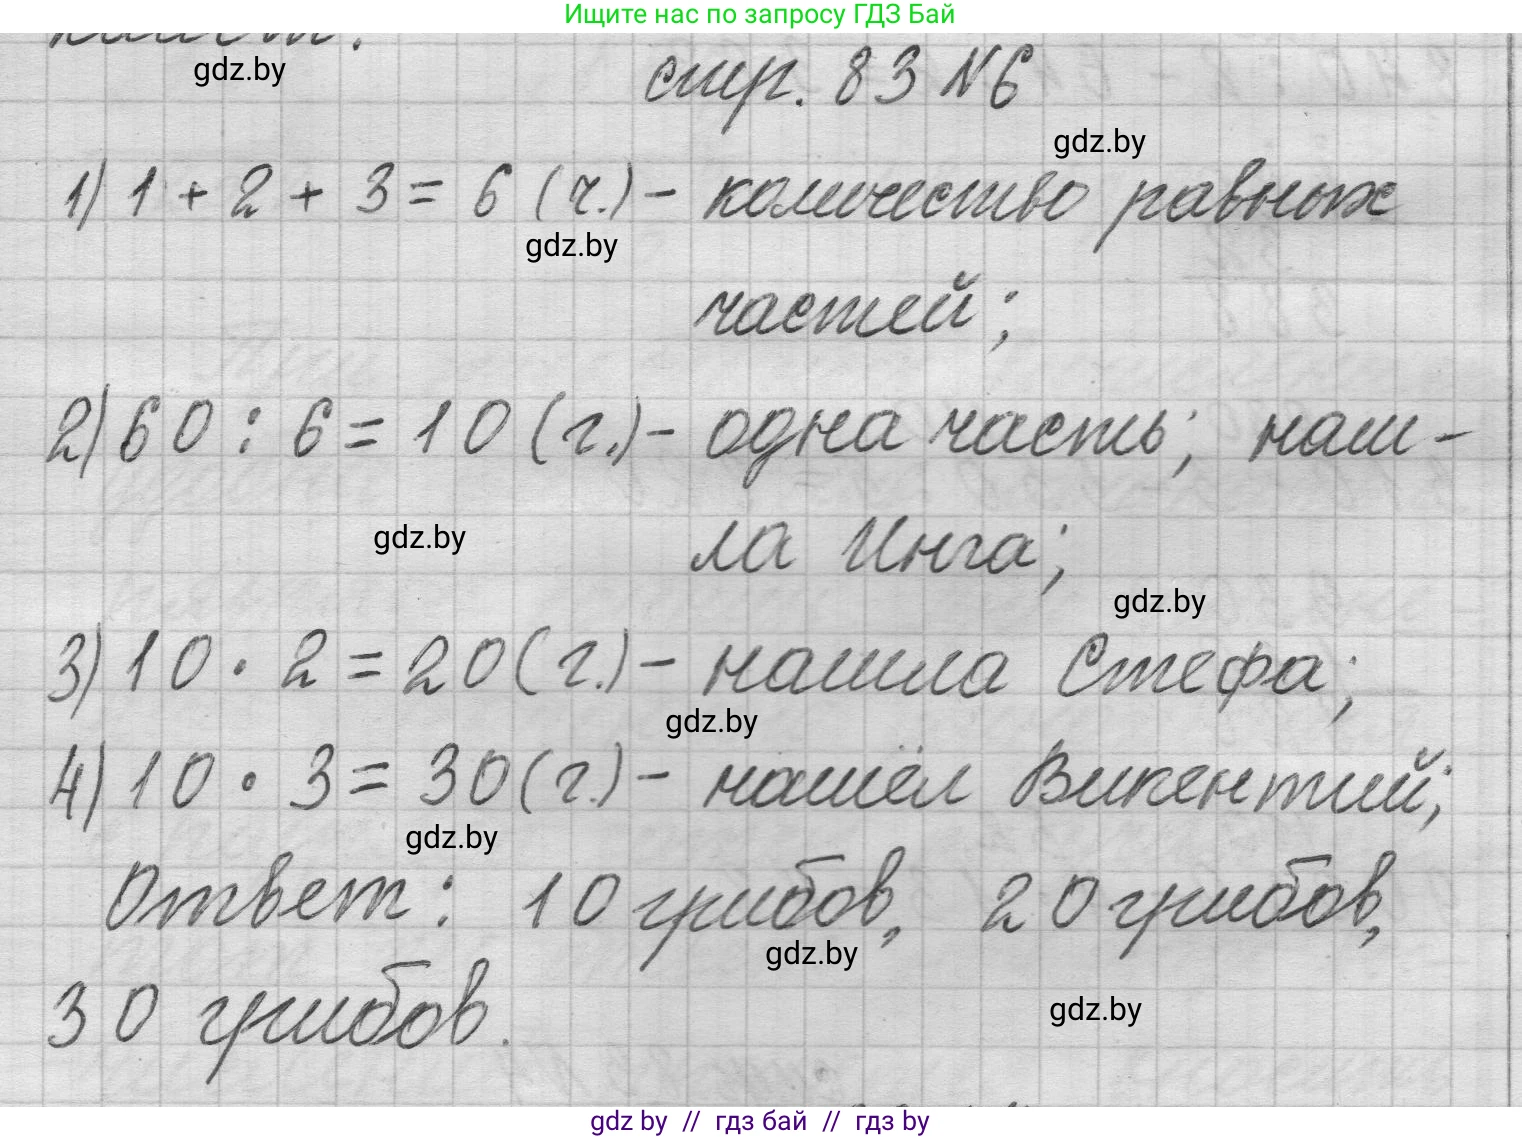 Ищите нас по запросу ГДЗ Бай
gdz.by
стр. 83 N6
gdz.by
1) 1 + 2 + 3 = 6 (ч.) - количество равных
gdz.by
частей;
2) 60 : 6 = 10 (г.) - одна часть; наш-
gdz.by
ла Инга;
gdz.by
3) 10 · 2 = 20 (г.) - нашла Стефа;
gdz.by
4) 10 · 3 = 30 (г.) - нашёл Викентий;
gdz.by
Ответ: 10 грибов, 20 грибов,
gdz.by
30 грибов.
gdz.by
gdz by // гдз бай // гдз by